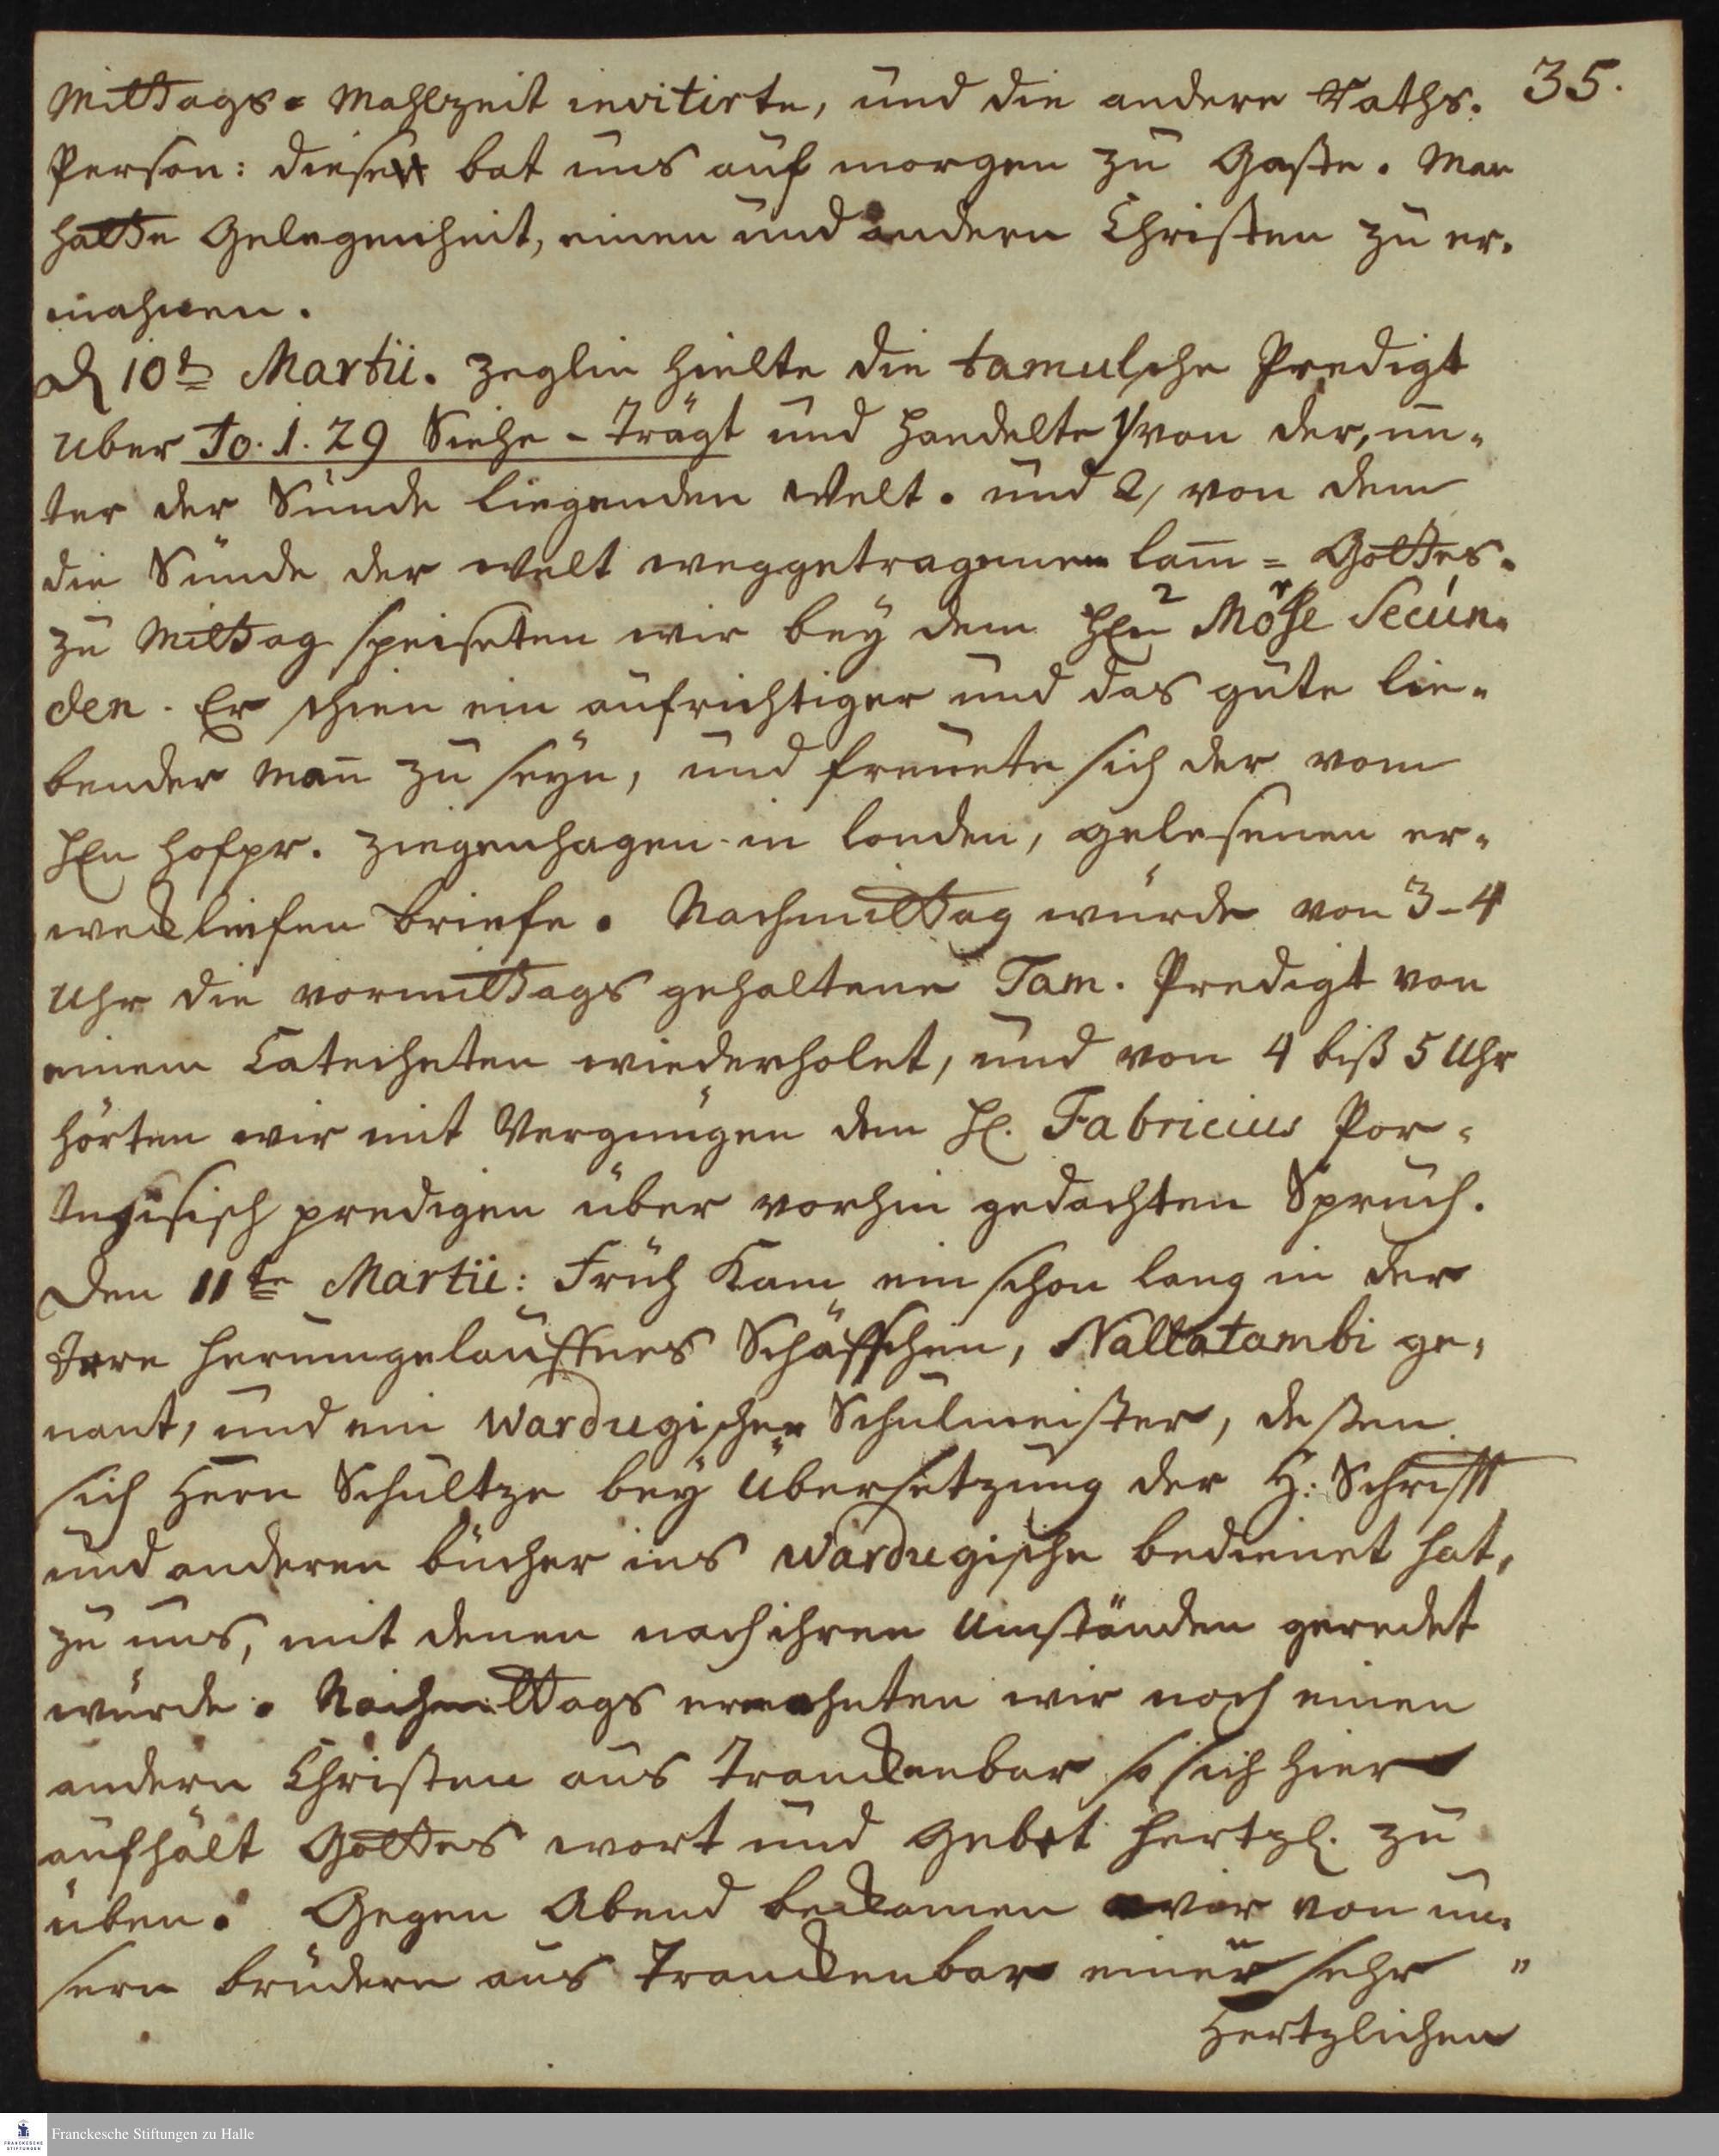 35.
Mittags= Mahlzeit invitirte, und die andere Raths-
Person: dieser bat uns auf morgen zu Gaste. Man
hatte Gelegenheit, einen und andern Christen zu er-
mahnen.
d 10t Martii. Zeglin hielte die tamulsche Predigt
uber Jo. 1. 29 Siehe - Trägt und handelte 1/ von der, un-
ter der Sünde liegenden Welt. und 2/ von dem
die Sünde der Welt weggetragenen lam̄ = Gottes.
zu Mittag speiseten wir bey dem HEn Möße Secun-
den. Er schien ein aufrichtiger und das gute lie-
bender Man̄ zu seyn, und freuete sich der vom
HEn Hofpr. Ziegenhagen in London, gelesenen er-
wecklichen Briefe. Nachmittag wurde von 3-4
Uhr die vormittags gehaltene Tam. Predigt von
einem Catecheten wiederholet, und von 4 biß 5 Uhr
hörten wir mit Vergnügen den H. Fabricius Por-
tugisisch predigen über vorhin gedachten Spruch.
Den 11te Martii: Früh kam ein schon lang in der
Irre herumgelauffnes Schäffchen, Nallatambi ge-
nant, und ein Wardugischer Schulmeister, deßen
sich Herr Schultze bey Übersetzung der H: Schrifft
und anderen bücher ins Wardugische bedienet hat,
zu uns, mit denen nach ihren Umständen geredet
wurde. Nachmittags ermahnten wir noch einen
andern Christen aus Tranckenbar so sich hier
aufhält Gottes wort und Gebet hertzl. zu
üben. Gegen Abend bekamen wir von un-
sern brüdern aus Tranckenbar einen sehr "
Hertzlichen
Franckesche Stiftungen zu Halle